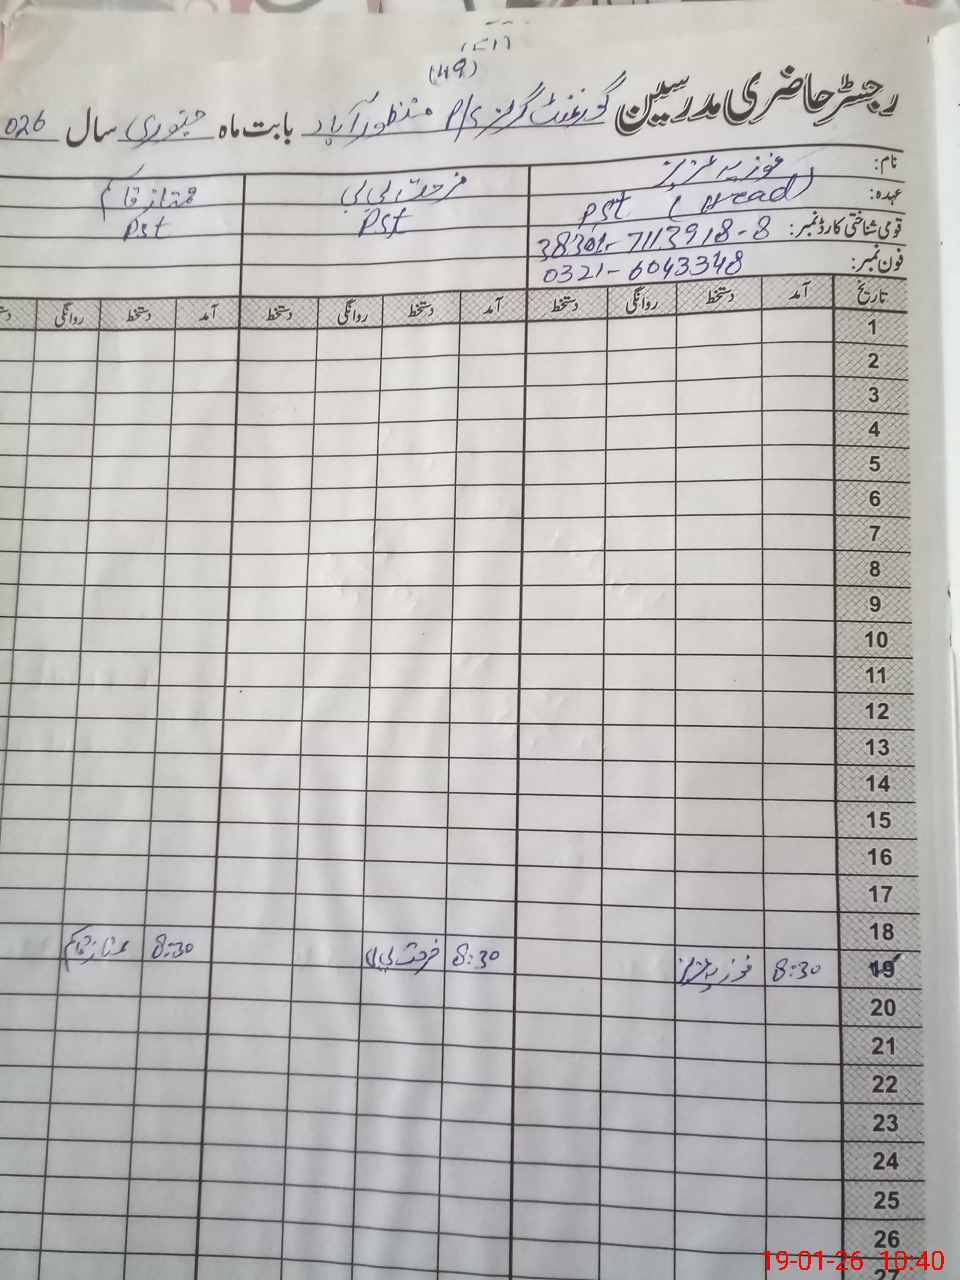 (49)
رجسٹر حاضری مدرسین گورنمنٹ گرلز P/S منظور آباد بابت ماہ جنوری سال 026
نام: فوزیہ عزیز فرحت بی بی ممتاز قاسم
عہدہ: Pst (Head) Pst Pst
قومی شناختی کارڈ نمبر: 38301-7113918-8
فون نمبر: 0321-6043348
تاریخ آمد دستخط روانگی دستخط آمد دستخط روانگی دستخط آمد دستخط روانگی
1
2
3
4
5
6
7
8
9
10
11
12
13
14
15
16
17
18
19 8:30 فوزیہ عزیز 8:30 فرحت بی بی 8:30 ممتاز قاسم
20
21
22
23
24
25
26
27
19-01-26 10:40